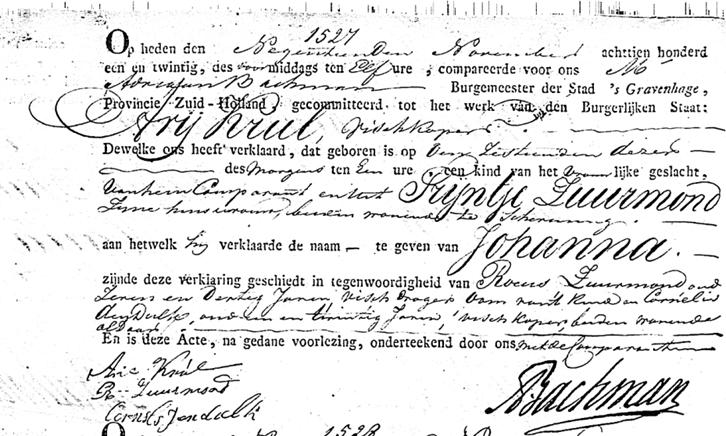 1527
Op heden den Negentienden November achttien honderd
een en twintig, des voormiddags ten Elf ure, compareerde voor ons Mr
Adriaan Bachman Burgemeester der Stad 's Gravenhage,
Provincie Zuid-Holland, gecommitteerd tot het werk van den Burgerlijken Staat:
Arij Krul, vischkoper
Dewelke ons heeft verklaard, dat geboren is op den zestienden dezer
des morgens ten Een ure, een kind van het vrouwlijke geslacht,
van hem Comparant en met Trijntje Zuurmond
zyne huisvrouw, beiden wonende te Scheveningen
aan hetwelk hij verklaarde de naam te geven van Johanna.
zijnde deze verklaring geschiedt in tegenwoordigheid van Roeus Zuurmond oud
zeven en Dertig Jaren, visch droger Oom van 't Kind en Cornelis
oud en twintig Jaren, vischkoper beiden wonende
aldaar
En is deze Acte, na gedane voorlezing, onderteekend door ons met de Comparanten
Arie Krul
Zuurmond
Bachman
1528